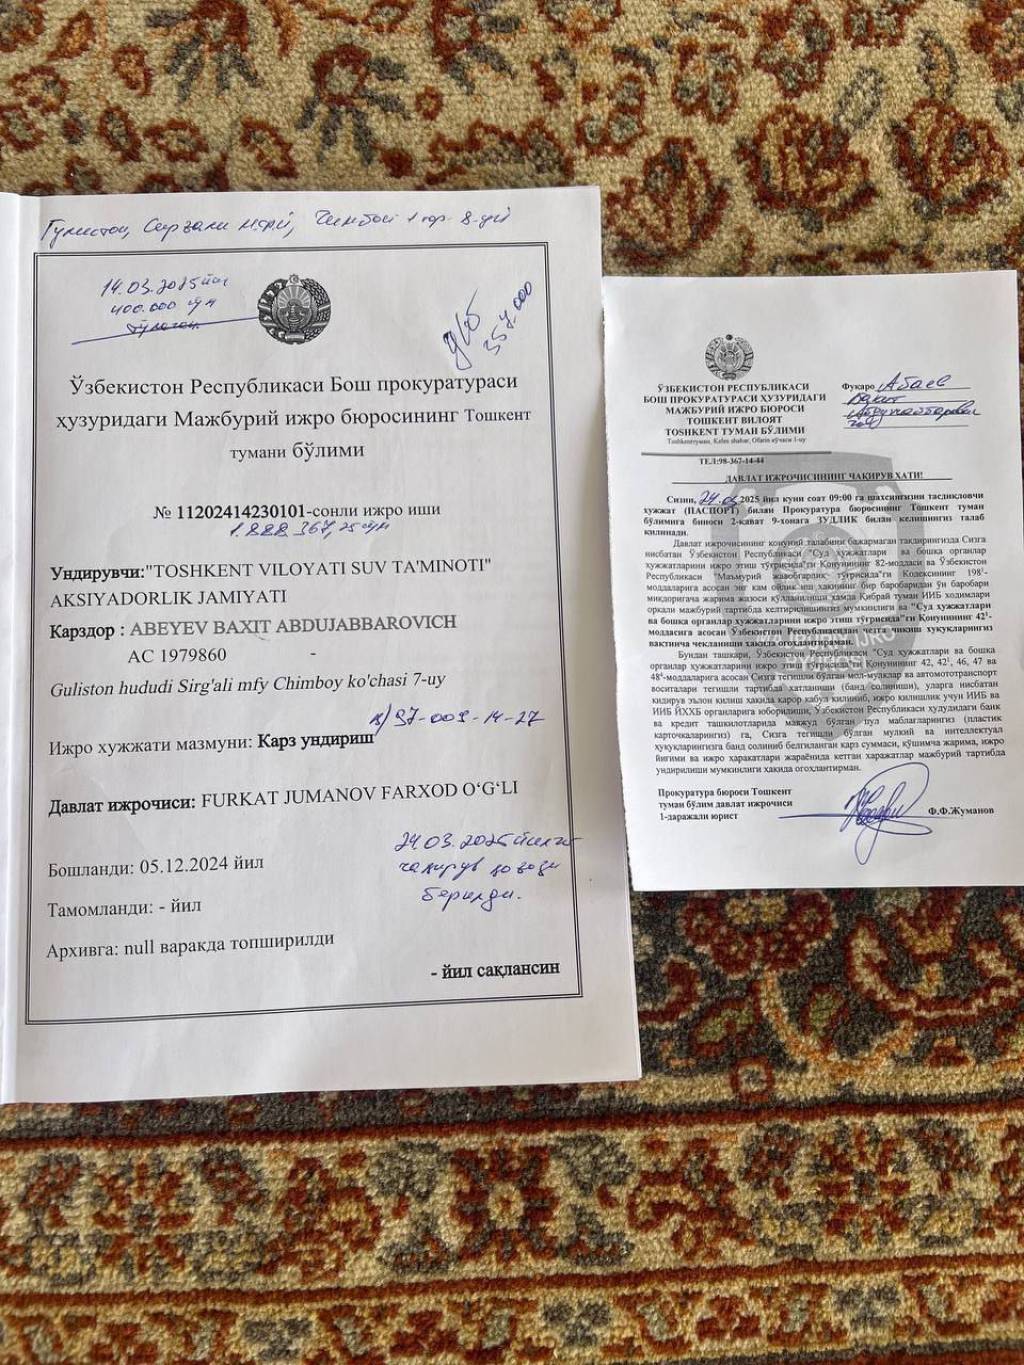 Гулистон, Сирғали МФЙ, Чимбой 1 тор. 8-уй
14.03.2025 йил
400.000 сўм
тўлаган
357.000
Ўзбекистон Республикаси Бош прокуратураси
ҳузуридаги Мажбурий ижро бюросининг Тошкент
тумани бўлими
№ 11202414230101-сонли ижро иши
1.888.367,25 сўм
Ундирувчи:"TOSHKENT VILOYATI SUV TA'MINOTI"
AKSIYADORLIK JAMIYATI
Карздор : ABEYEV BAXIT ABDUJABBAROVICH
AC 1979860 -
Guliston hududi Sirg'ali mfy Chimboy ko'chasi 7-uy
97-009-14-27
Ижро хужжати мазмуни: Карз ундириш
Давлат ижрочиси: FURKAT JUMANOV FARXOD O‘G‘LI
24.03.2025 йилга
чақирув қоғози
берилди.
Бошланди: 05.12.2024 йил
Тамомланди: - йил
Архивга: null варакда топширилди
- йил сақлансин
ЎЗБЕКИСТОН РЕСПУБЛИКАСИ
БОШ ПРОКУРАТУРАСИ ҲУЗУРИДАГИ
МАЖБУРИЙ ИЖРО БЮРОСИ
ТОШКЕНТ ВИЛОЯТ
TOSHKENT ТУМАН БЎЛИМИ
Toshkenttyman, Keles shahar, Ofarin кўчаси 1-uy
Фукаро Абаев
Бахит
ТЕЛ:98-367-14-44
ДАВЛАТ ИЖРОЧИСИНИНГ ЧАҚИРУВ ХАТИ!
Сизни, 24.03.2025 йил куни соат 09:00 га шахсингизни тасдикловчи
хужжат (ПАСПОРТ) билан Прокуратура бюросининг Тошкент туман
бўлимига биноси 2-кават 9-хонага ЗУДЛИК билан келишингиз талаб
килинади.
Давлат ижрочисининг конуний талабини бажармаган такдирингизда Сизга
нисбатан Ўзбекистон Республикаси "Суд ҳужжатлари ва бошка органлар
ҳужжатларини ижро этиш тўғрисида"ги Конуннинг 82-моддаси ва Ўзбекистон
Республикаси "Маъмурий жавобгарлик тўғрисида"ги Кодексининг 198¹-
моддаларига асосан энг кам ойлик иш хакининг бир баробаридан ўн баробари
микдоригача жарима жазоси қўлланилиши хамда Қибрай туман ИИБ ходимлари
оркали мажбурий тартибда келтирилишингиз мумкинлиги ва "Суд ҳужжатлари
ва бошка органлар ҳужжатларини ижро этиш тўғрисида"ги Конуннинг 42¹-
моддасига асосан Ўзбекистон Республикасидан четга чикиш хукукларингиз
вактинча чекланиши хакида огохлантираман.
Бундан ташкари, Ўзбекистон Республикаси "Суд ҳужжатлари ва бошка
органлар ҳужжатларини ижро этиш тўғрисида"ги Конуннинг 42, 42¹, 46, 47 ва
48¹-моддаларига асосан Сизга тегишли бўлган мол-мулклар ва автомототранспорт
воситалари тегишли тартибда хатланиши (банд солиниши), уларга нисбатан
кидирув эълон килиш хақида карор кабул килиниб, ижро килинлик учун ИИБ ва
ИИБ ЙХХБ органларига юборилиши, Ўзбекистон Республикаси ҳудудидаги банк
ва кредит ташкилотларида мавжуд бўлган пул маблағларингиз (пластик
карточкаларингиз) га, Сизга тегишли бўлган мулкий ва интеллектуал
ҳуқуқларингизга банд солиниб белгиланган карз суммаси, қўшимча жарима, ижро
йиғими ва ижро ҳаракатлари жараёнида кетган харажатлар мажбурий тартибда
ундирилиши мумкинлиги ҳақида огоҳлантирман.
Прокуратура бюроси Тошкент
туман бўлим давлат ижрочиси
1-даражали юрист
Ф.Ф.Жуманов